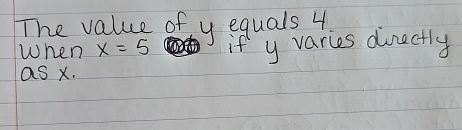 The value of y equals 4
when x = 5 if y varies directly
as x.